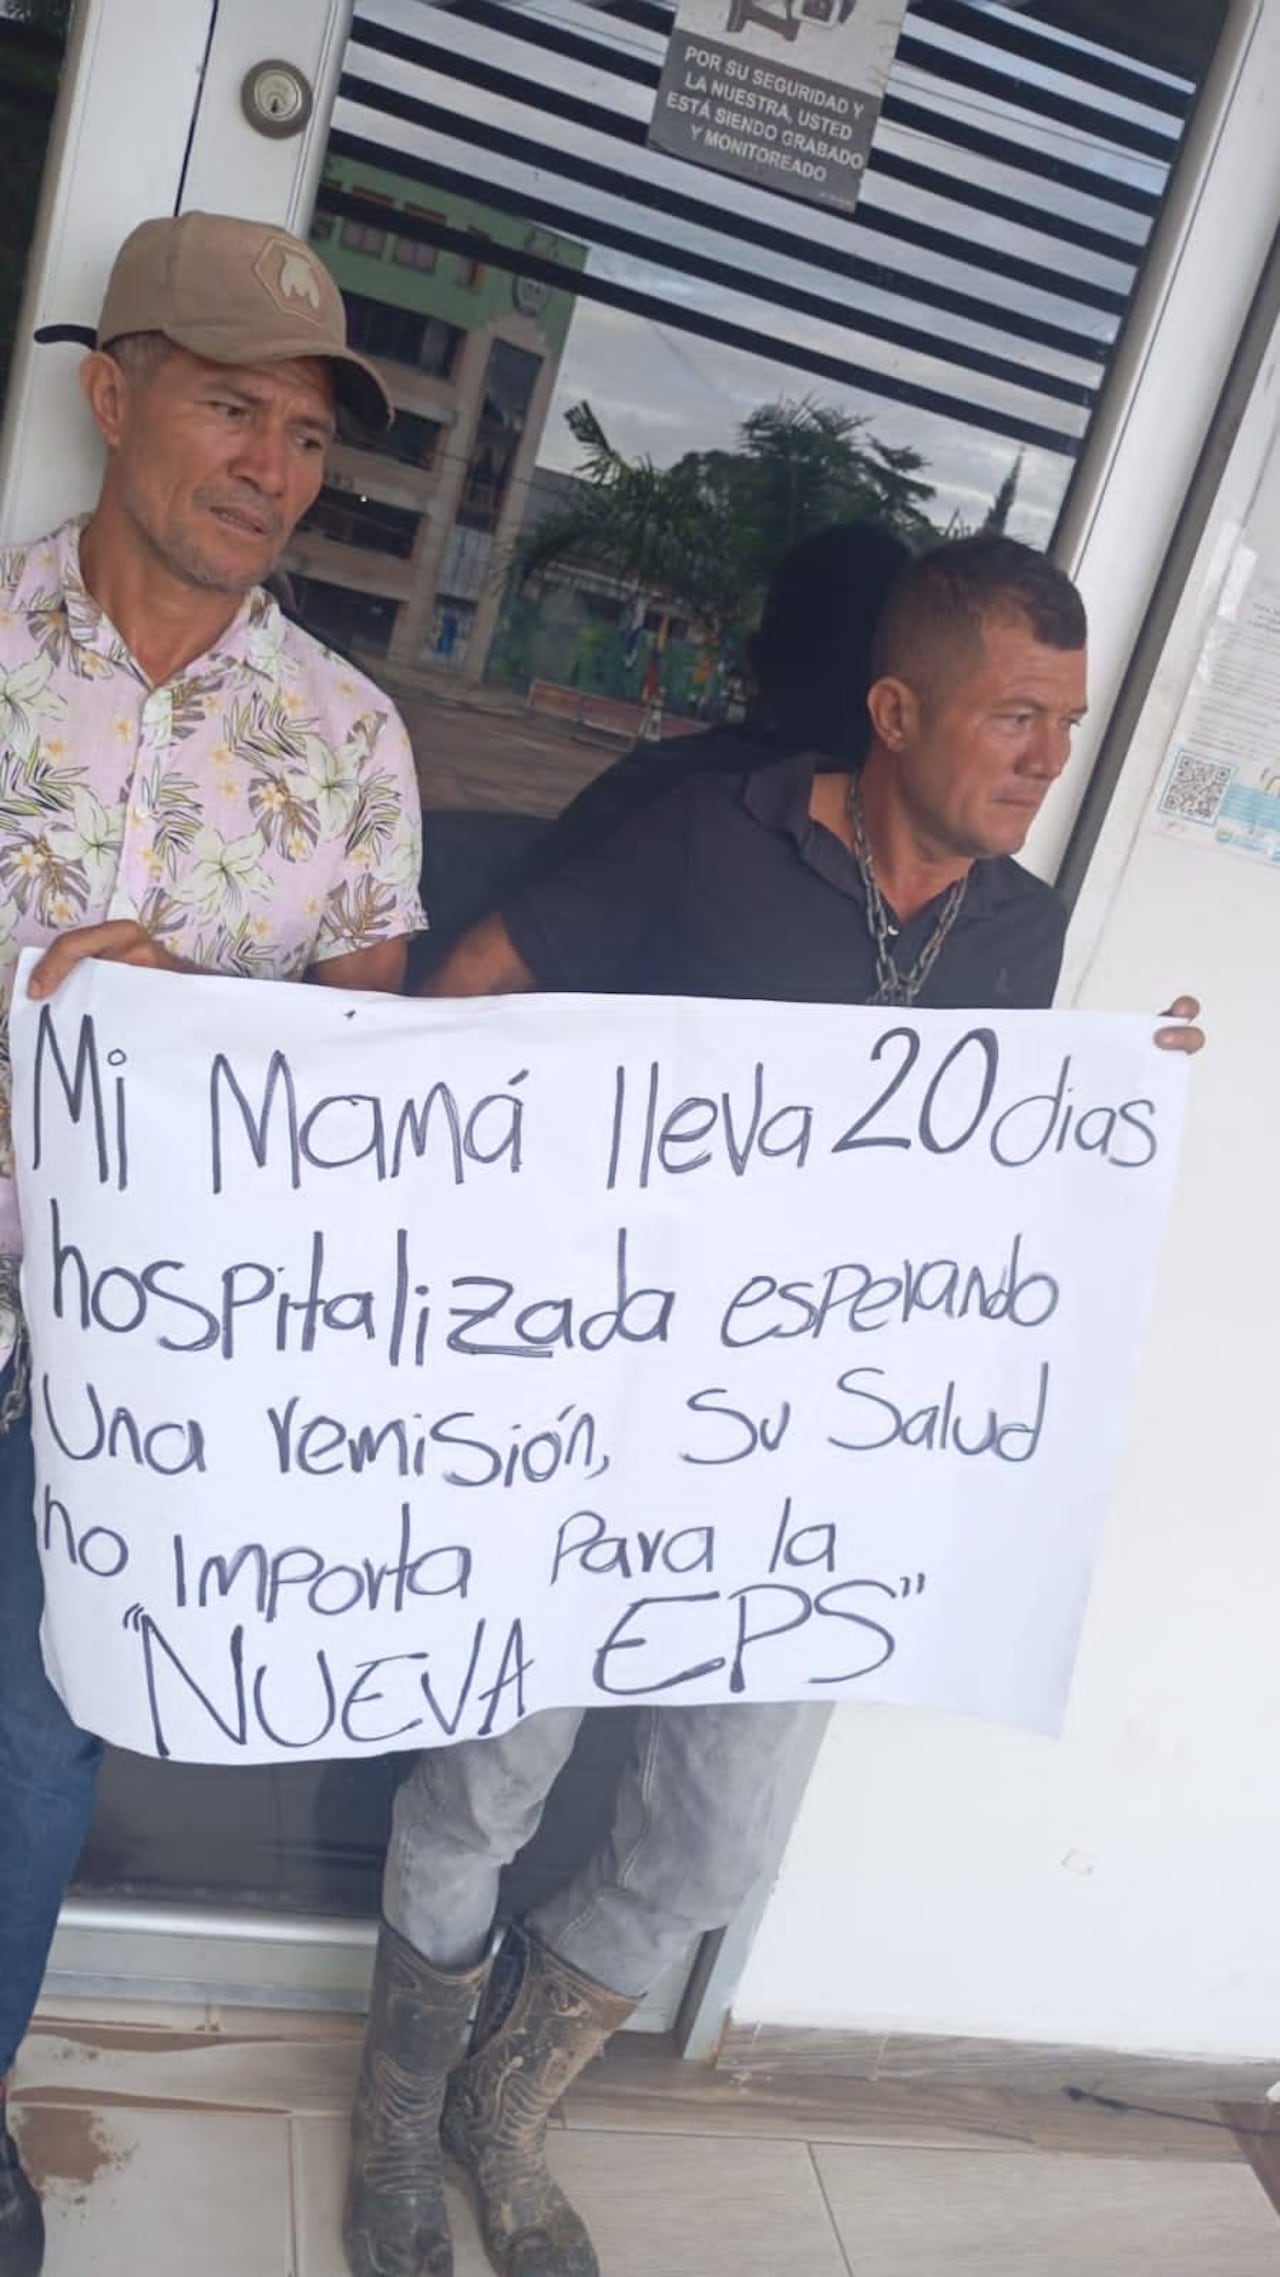 POR SU SEGURIDAD Y
LA NUESTRA, USTED
ESTÁ SIENDO GRABADO
Y MONITOREADO
Mi Mamá lleva 20 dias
hospitalizada esperando
Una remisión, Su Salud
no importa Para la
"NUEVA EPS"